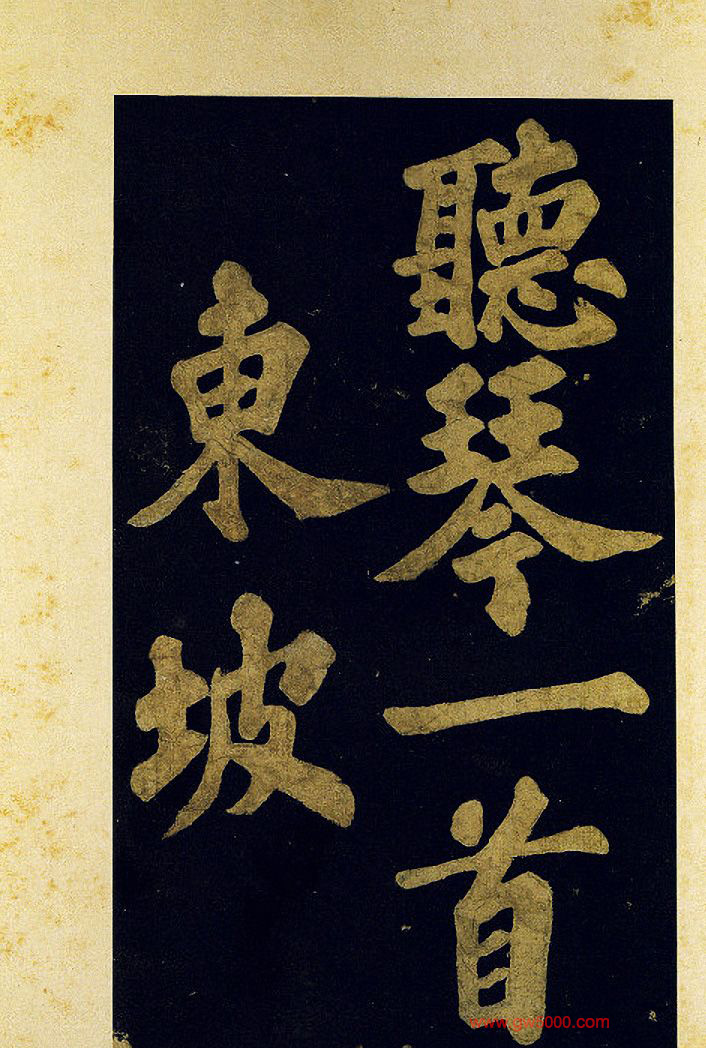 聽琴一首
東坡
www.gwd000.com